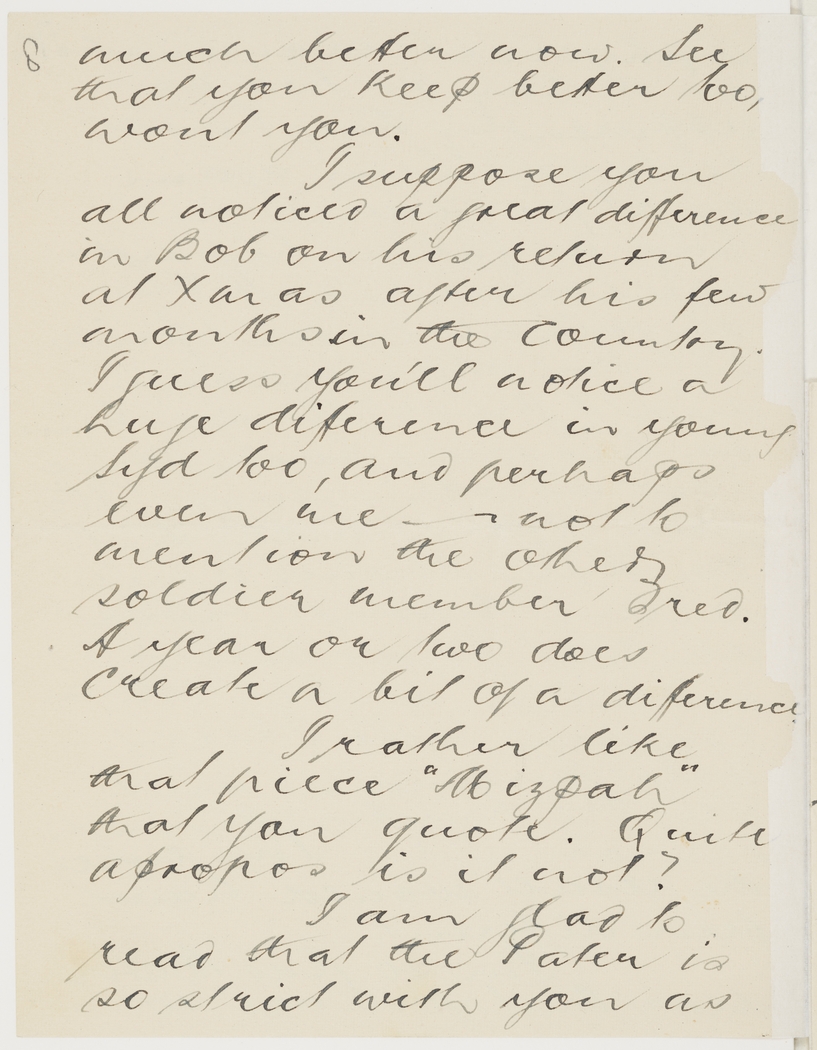 8
much better now. See
that you keep better too,
wont you.
I suppose you
all noticed a great difference
in Bob on his return
at Xmas after his few
months in the Country.
I guess you'll notice a
huge diference in young
Syd too, and perhaps
even me — not to
mention the other
soldier member Fred.
A year or two does
Create a bit of a diference.
I rather like
that piece "Mizpah"
that you quote. Quite
apropos is it not?
I am glad to
read that the Pater is
so strict with you as